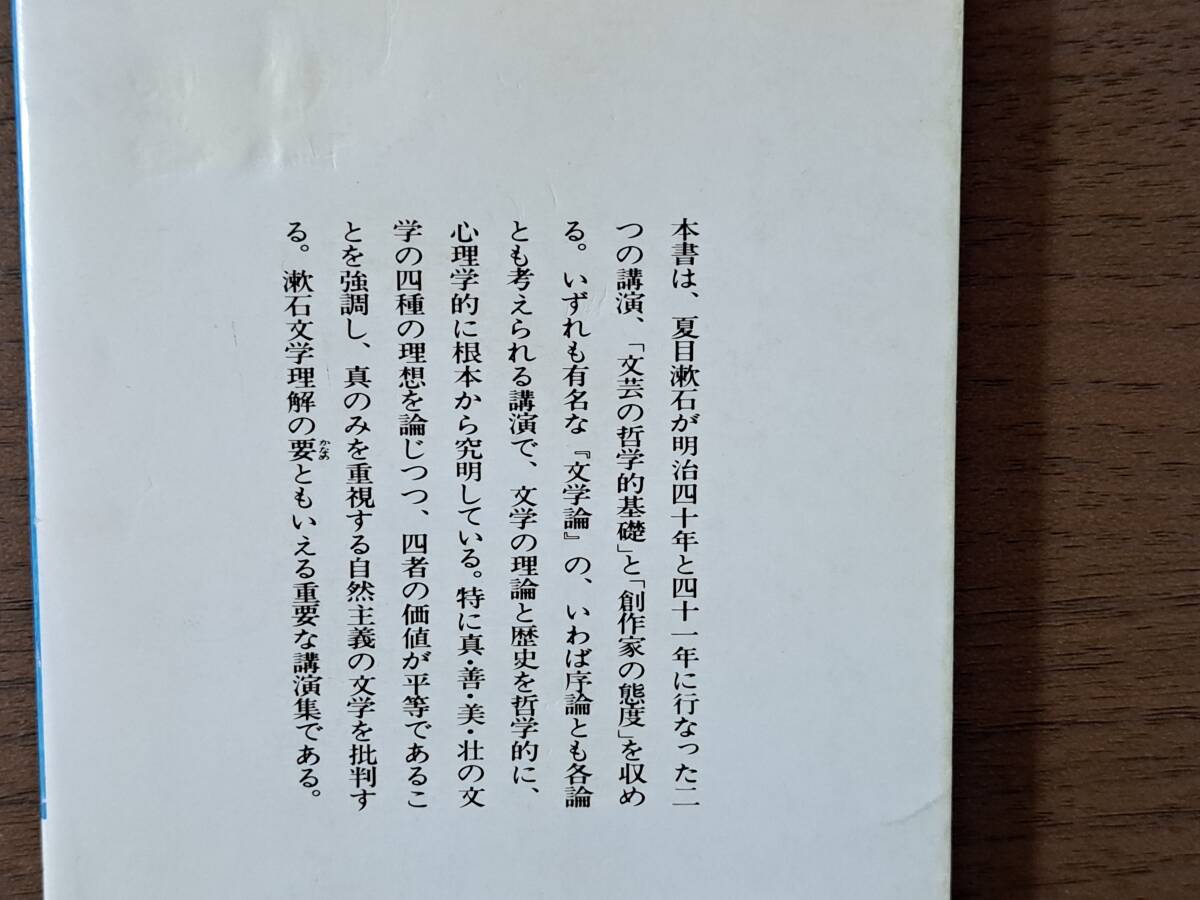 本書は、夏目漱石が明治四十年と四十一年に行なった二
つの講演、「文芸の哲学的基礎」と「創作家の態度」を収め
る。いずれも有名な『文学論』の、いわば序論とも各論
とも考えられる講演で、文学の理論と歴史を哲学的に、
心理学的に根本から究明している。特に真・善・美・壮の文
学の四種の理想を論じつつ、四者の価値が平等であるこ
とを強調し、真のみを重視する自然主義の文学を批判す
る。漱石文学理解の要かなめともいえる重要な講演集である。